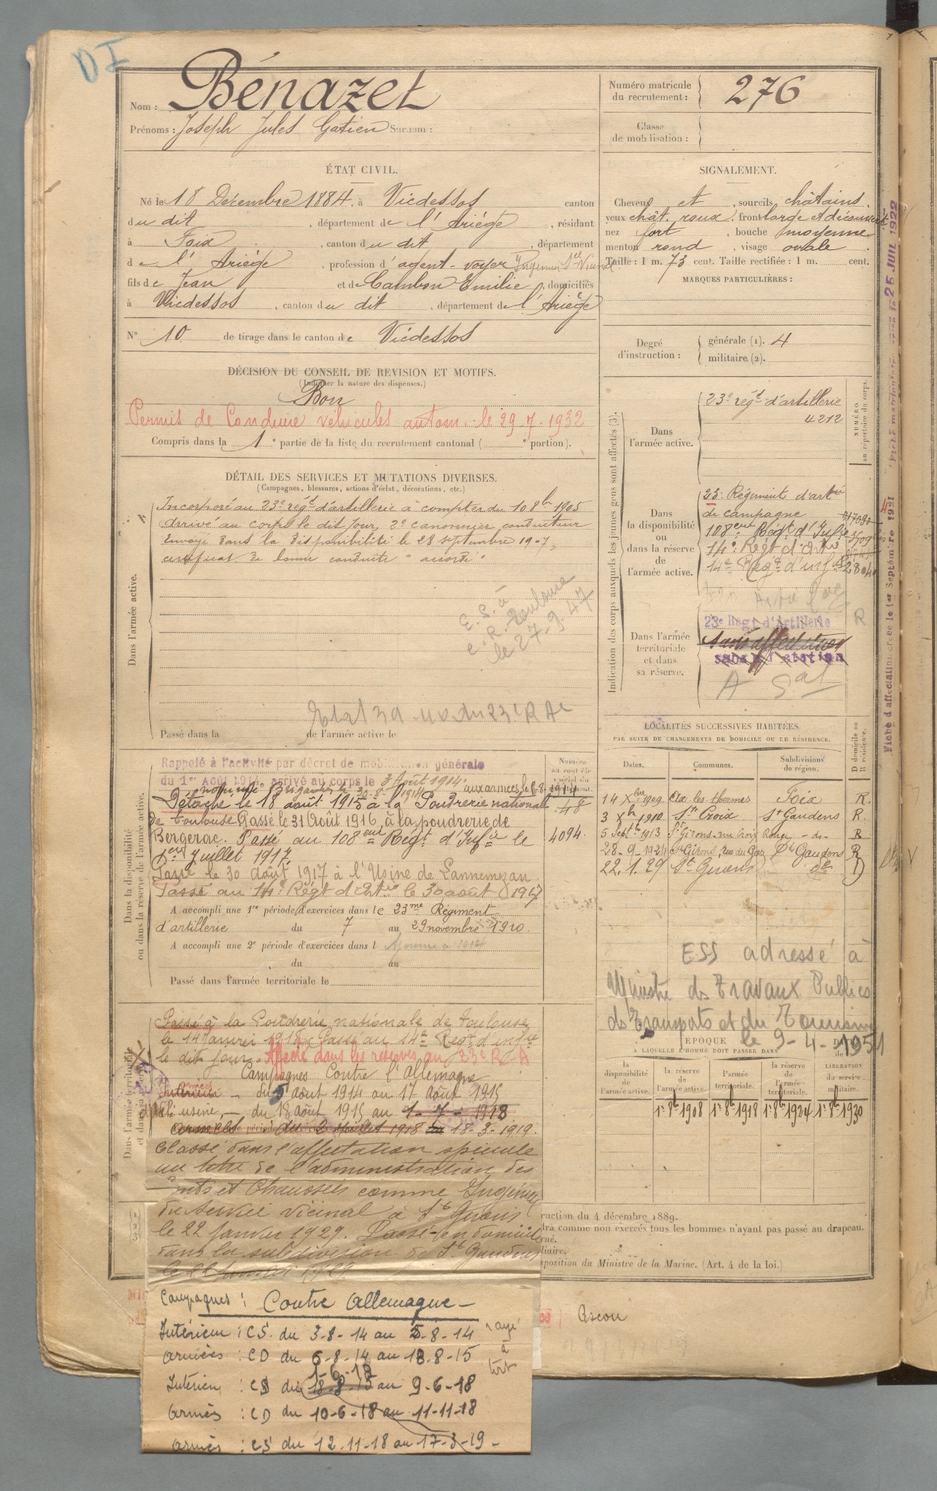 DI
Nom : Bénazet
Prénoms : Joseph Jules Gatien Surnom :
Numéro matricule du recrutement : 276
Classe de mobilisation :
ÉTAT CIVIL.
Né le 18 Décembre 1884, à Vicdessos canton
du dit, département de l'Ariège, résidant
à Foix, canton du dit, département
de l'Ariège, profession d'agent-voyer
fils de Jean et de Cambon Emilie, domiciliés
à Vicdessos, canton du dit, département de l'Ariège
N° 10 de tirage dans le canton de Vicdessos
SIGNALEMENT.
Cheveux et, sourcils châtains.
yeux chât. roux, front large et découvert
nez fort, bouche moyenne
menton rond, visage ovale.
Taille : 1 m. 73 cent. Taille rectifiée : 1 m. cent.
MARQUES PARTICULIÈRES :
Degré d'instruction : générale (1). 4
militaire (2).
DÉCISION DU CONSEIL DE REVISION ET MOTIFS.
(Indiquer la nature des dispenses.)
Bon
Permis de Conduire véhicules autom. le 29.7.1932
Compris dans la 1e partie de la liste du recrutement cantonal ( e portion).
DÉTAIL DES SERVICES ET MUTATIONS DIVERSES.
(Campagnes, blessures, actions d'éclat, décorations, etc.)
Dans l'armée active.
Incorporé au 23e régt d'artillerie à compter du 10 8bre 1905
Arrivé au corps le dit jour, 2e canonnier conducteur
Envoyé dans la disponibilité le 28 septembre 1907,
certificat de bonne conduite "accordé"
E.S. à
C.R. Toulouse
le 27-9-47
Passé dans la de l'armée active le
Indication des corps auxquels les jeunes gens sont affectés (3).
Dans l'armée active.
23e régt d'artillerie
4212
NUMÉRO au répertoire du corps.
Dans la disponibilité ou dans la réserve de l'armée active.
23e Régiment d'artie
de campagne
108eme Régt d'Infie
14e Régt d'Artie
14e Régt d'infie
Dans l'armée territoriale et dans sa réserve.
23e Régt d'Artillerie
Sans affectation
sans affectation
R
Fiche d'affectation créée le 1er Septembre 1921
25 JUIL 1922
LOCALITÉS SUCCESSIVES HABITÉES.
PAR SUITE DE CHANGEMENTS DE DOMICILE OU DE RÉSIDENCE.
Dates. Communes. Subdivisions de région. D domicile ou R résidence.
14 Xbre 1909 Ax les thermes Foix R.
3 Xbre 1910 Ste Croix St Gaudens R.
5 Sept 1913 St Girons R
28-9-1921 St Girons, rue du Gaz St Gaudens R
22.1.29 St Girons do D
ESS adressé à
Ministre des Travaux Publics
des Transports et du Tourisme
le 9-4-1951
Dans la disponibilité ou dans la réserve de l'armée active.
Rappelé à l'activité par décret de mobilisation générale
du 1er Août 1914, arrivé au corps le 3 Août 1914.
Détaché le 18 août 1915 à la Poudrerie nationale 48
de Toulouse Passé le 31 Août 1916, à la poudrerie de
Bergerac. Passé au 108eme Régt d'Infie le 4094
1er Juillet 1917.
Passé le 30 Août 1917 à l'Usine de Lannemezan
Passé au 14e Régt d'Artie le 30 août 1917
A accompli une 1re période d'exercices dans le 23me Régiment
d'artillerie du 7 au 29 novembre 1910.
A accompli une 2e période d'exercices dans l
du au
Passé dans l'armée territoriale le
Passé à la Poudrerie nationale de Toulouse
le 14 Janvier 1918. Passé au 14e Régt d'infie
le dit jour. Affecté dans les réserves au 23e R.A
Campagnes Contre l'Allemagne
Intérieur - du 3 août 1914 au 17 août 1915
usine, - du 18 août 1915 au 1-7-1918
armées du 2 Juillet 1918 au 18-3-1919.
Classé dans l'affectation spéciale
au titre de l'administration des
Ponts et Chaussées comme Ingénieur
du Service vicinal à St Girons
le 22 Janvier 1929. Passé en domicile
dans la subdivision de St Gaudens
le 22 Janvier 1929
ÉPOQUE
À LAQUELLE L'HOMME DOIT PASSER DANS
la disponibilité de l'armée active. la réserve de l'armée active. l'armée territoriale. la réserve de l'armée territoriale. LIBÉRATION du service militaire.
1er 8bre 1908 1er 8bre 1918 1er 8bre 1924 1er 8bre 1930
ruction du 4 décembre 1889.
dra comme non exercés tous les hommes n'ayant pas passé au drapeau.
position du Ministre de la Marine. (Art. 4 de la loi.)
Campagnes : Contre Allemagne -
Intérieur : CS du 3-8-14 au 5-8-14
Armées : CD du 6-8-14 au 18-8-15
1-6-18
Intérieur : CS du 18-8-15 au 9-6-18
Armées : CD du 10-6-18 au 11-11-18
Armées : CS du 12-11-18 au 17-3-19 -
rayé
à
tort